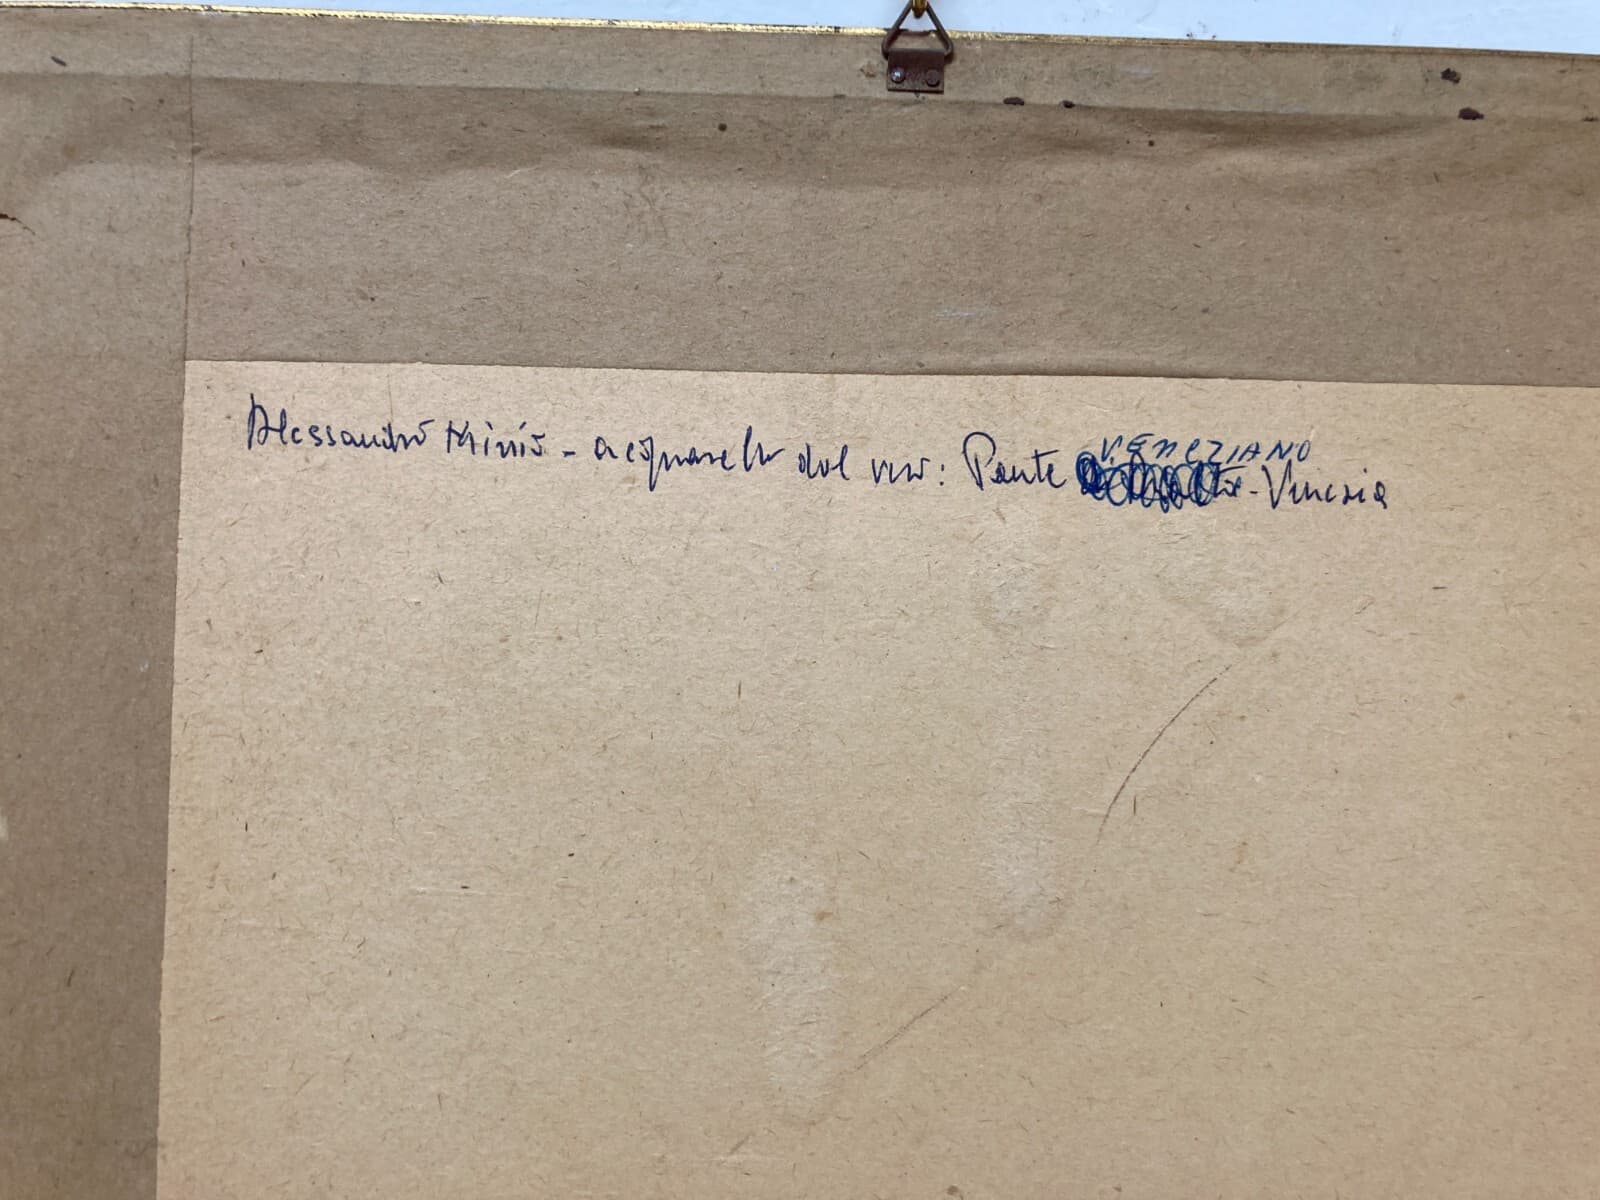 Alessandro Minio - acquarello dal vero: Ponte VENEZIANO - Venezia